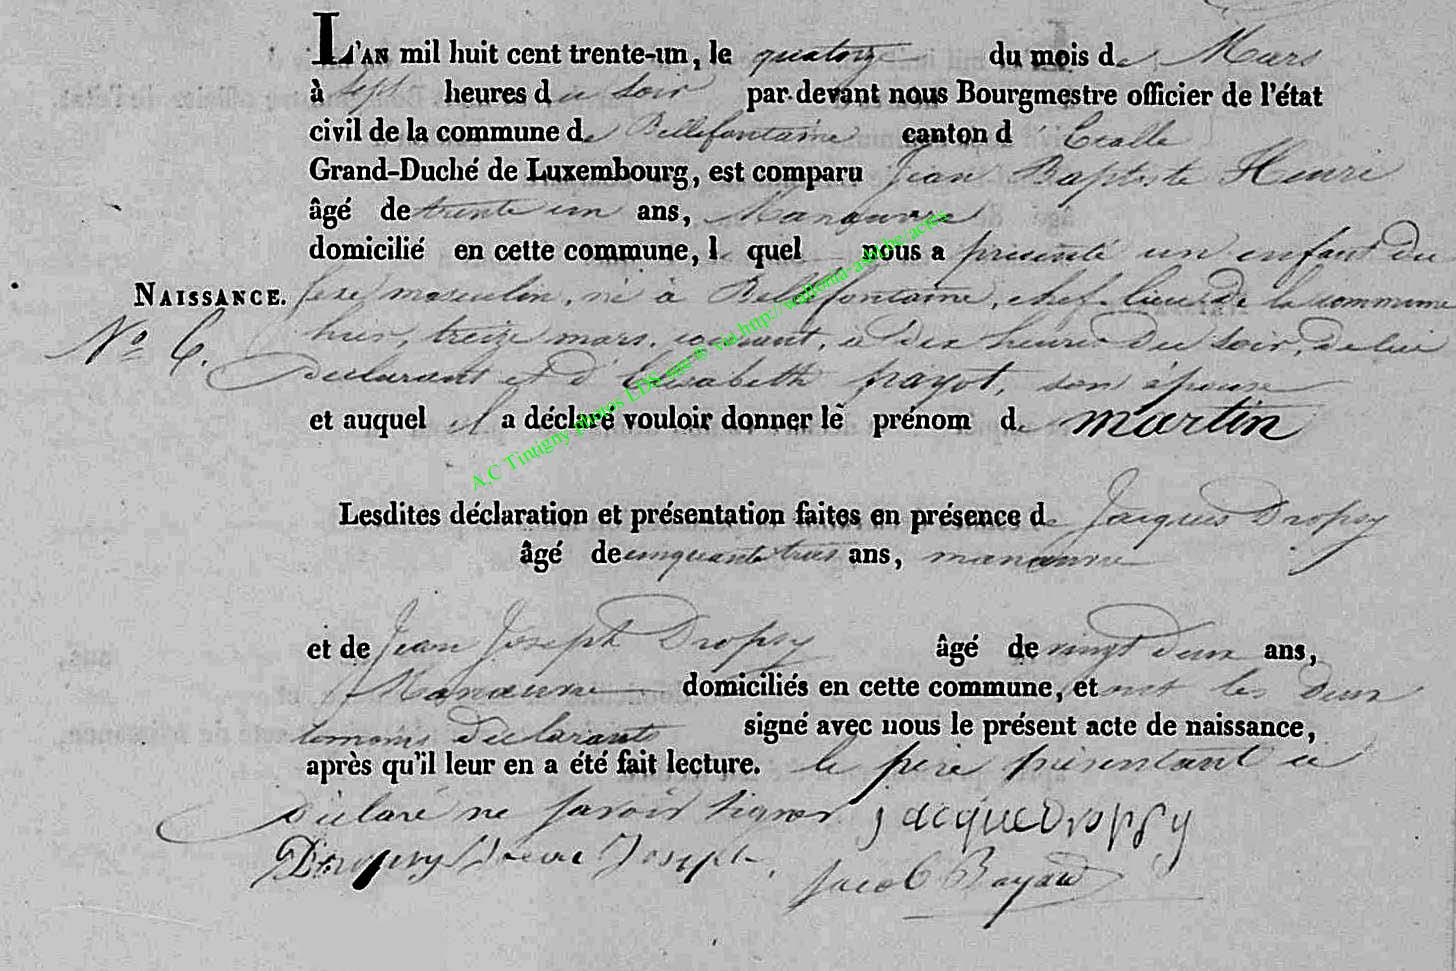 L'AN mil huit cent trente-un, le quatorze du mois de Mars
à sept heures du soir par-devant nous Bourgmestre officier de l'état
civil de la commune de Bellefontaine canton d'Etalle
Grand-Duché de Luxembourg, est comparu Jean Baptiste Henri
âgé de trente un ans, Manœuvre
domicilié en cette commune, lequel nous a présenté un enfant du
NAISSANCE. sexe masculin, né à Bellefontaine, chef-lieu de la commune
N° 6. hier, treize mars, courant, à dix heures du soir, de lui
déclarant et d'Elisabeth payot, son épouse
et auquel il a déclaré vouloir donner le prénom de martin
A,C Tintigny photos LDS via http://wallonia-asbl.be/actes
Lesdites déclaration et présentation faites en présence de Jacques Dropsy
âgé de cinquante trois ans, manœuvre
et de Jean Joseph Dropsy âgé de vingt deux ans,
Manœuvre domiciliés en cette commune, et ont les deux
temoins déclarants signé avec nous le présent acte de naissance,
après qu'il leur en a été fait lecture. le père présentant a
déclaré ne savoir signer jacque Dropsy
Dropsy Joseph
Jacob